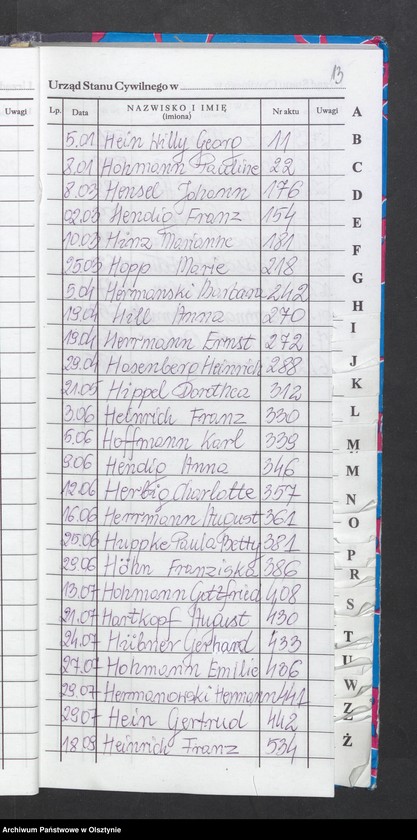 13
Urząd Stanu Cywilnego w
Uwagi Lp. Data NAZWISKO I IMIĘ (imiona) Nr aktu Uwagi
5.01 Hein Willy Georg 11
8.01 Hohmann Pauline 22
8.03 Hensel Johann 176
02.03 Hendig Franz 154
10.03 Hinz Marianne 181
25.03 Hopp Marie 218
5.04 Hermanski Barbara 242
19.04 Hill Anna 270
19.04 Herrmann Ernst 272
29.04 Hasenberg Heinrich 288
21.05 Hippel Dorothea 312
3.06 Heinrich Franz 330
5.06 Hoffmann Karl 339
9.06 Hendig Anna 346
12.06 Herbig Charlotte 357
16.06 Herrmann August 361
25.06 Huppke Paula Betty 381
29.06 Höhn Franziska 386
13.07 Hohmann Gottfried 408
21.07 Hartkopf August 430
24.07 Hübner Gerhard 433
27.07 Hohmann Emilie 436
29.07 Hermanowski Hermann 441
29.07 Hein Gertrud 442
18.09 Heinrich Franz 534
A
B
C
D
E
F
G
H
I
J
K
L
M
M
N
O
P
R
S
T
U
W
Z
Ż
Archiwum Państwowe w Olsztynie